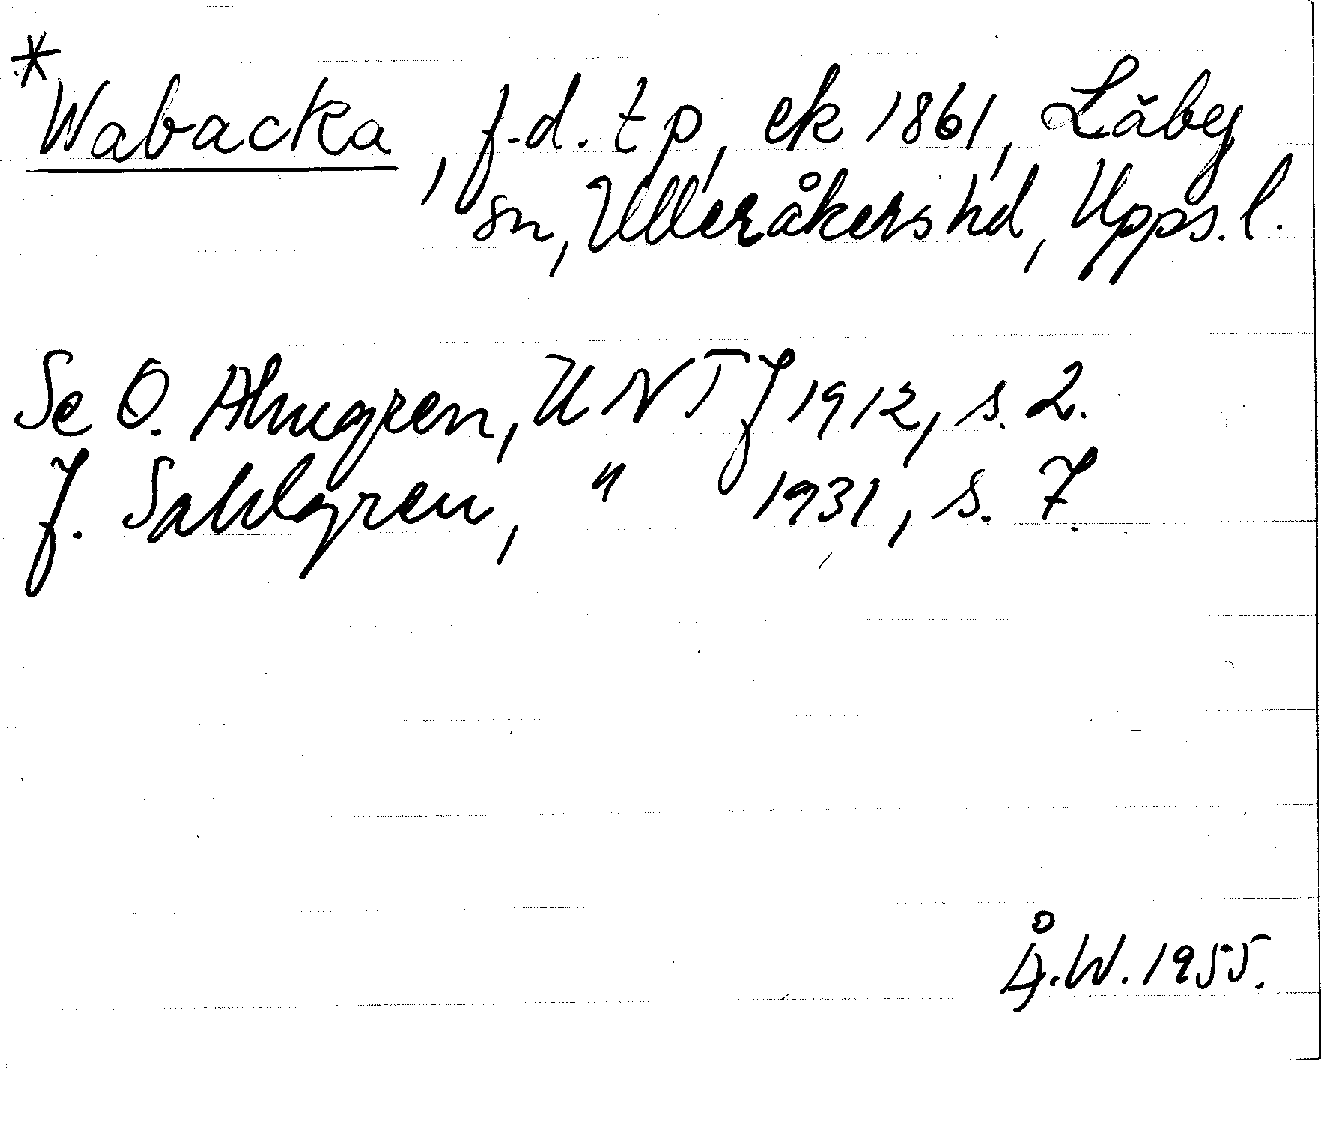 *Wabacka, f.d. tp, ek 1861, Läby
sn, Ulleråkers hd, Upps. l.
Se O. Almgren, UNT J 1912, s. 2.
J. Sahlgren, " 1931, s. 7.
Å.W. 1955.